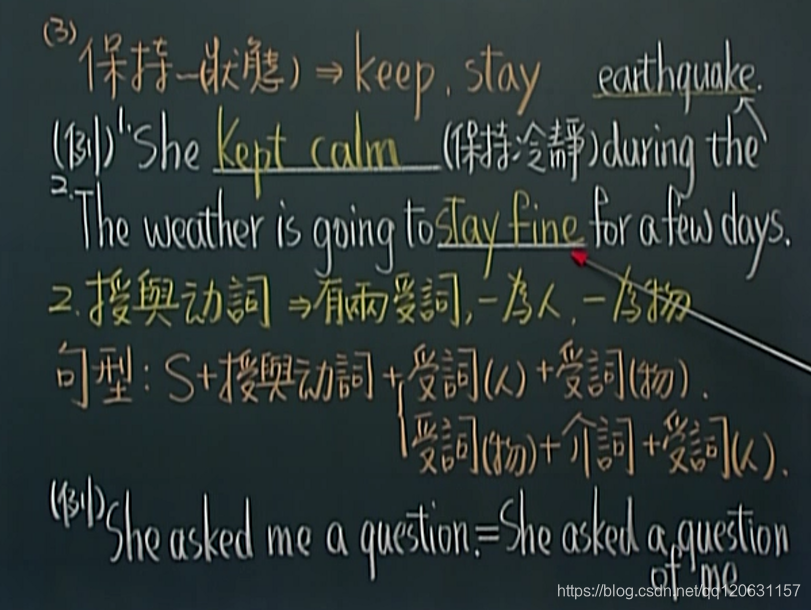 (3) 保持~(狀態) ⇒ keep, stay
(例) 1. She kept calm (保持冷靜) during the earthquake.
2. The weather is going to stay fine for a few days.
2. 授與动詞 ⇒ 有兩受詞, 一為人, 一為物
句型: S + 授與动詞 + 受詞(人) + 受詞(物).
受詞(物) + 介詞 + 受詞(人).
(例) She asked me a question. = She asked a question
of me
https://blog.csdn.net/qq120631157